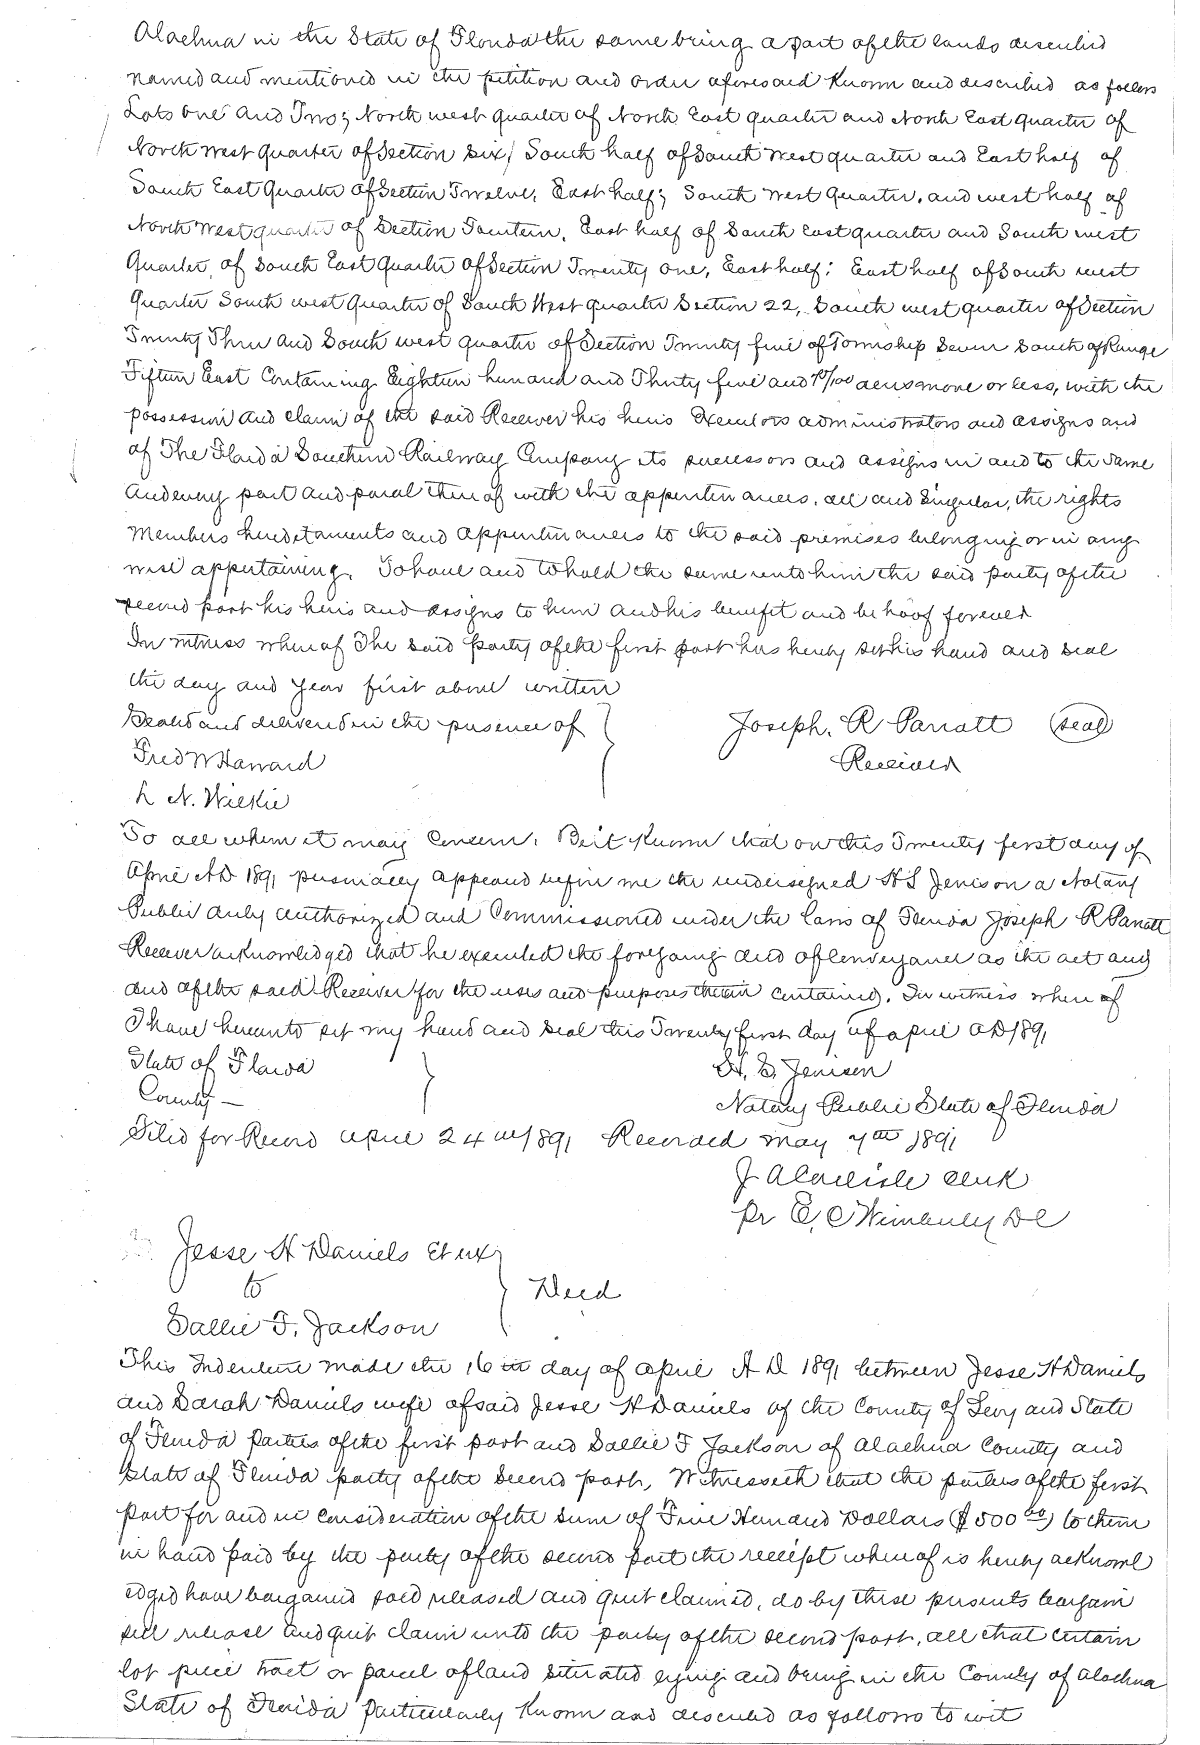 Alachua in the State of Florida the same being a part of the lands described
named and mentioned in the petition and order aforesaid Known and described as follows
Lots one and Two; North west quarter of North East quarter and North East quarter of
North West quarter of Section Six; South half of South West quarter and East half of
South East Quarter of Section Twelve, East half; South West Quarter, and west half of
North West quarter of Section Fourteen, East half of South East quarter and South west
Quarter of South East Quarter of Section Twenty one, East half; East half of South west
quarter South west quarter of South West quarter Section 22, South west quarter of Section
Twenty Three and South west quarter of Section Twenty five of Township Seven South of Range
Fifteen East Containing Eighteen hundred and Thirty five and /100 acres more or less, with the
possession and claim of the said Receiver his heirs Executors administrators and assigns and
of The Florida Southern Railway Company its successors and assigns in and to the same
and every part and parcel thereof with the appurtenances, all and Singular, the rights
Members hereditaments and appurtenances to the said premises belonging or in any
wise appertaining. To have and to hold the same unto him the said party of the
second part his heirs and assigns to him and his benefit and behoof forever
In witness whereof The said party of the first part has hereby set his hand and seal
the day and year first above written
Sealed and delivered in the presence of
Joseph. R Parrott (seal)
Receiver
Fred W Hawand
L N. Wilkie
To all whom it may Concern. Be it Known that on this Twenty first day of
April AD 1891 personally appeared before me the undersigned H S Jenison a Notary
Public duly authorized and Commissioned under the laws of Florida Joseph R Parrott
Receiver acknowledged that he executed the foregoing deed of Conveyance as the act and
deed of the said Receiver for the uses and purposes therein contained. In witness whereof
I have hereunto set my hand and seal this Twenty first day of april AD 1891
State of Florida
County —
H. S. Jenison
Notary Public State of Florida
Filed for Record april 24th 1891 Recorded May 7th 1891
J A Carlisle Clerk
Pr E, C Wimberly DC
Jesse H Daniels et ux
to
Deed
Sallie F. Jackson
This Indenture made the 16th day of april A D 1891 between Jesse H Daniels
and Sarah Daniels wife of said Jesse H Daniels of the County of Levy and State
of Florida Parties of the first part and Sallie F Jackson of Alachua County and
State of Florida party of the Second part, Witnesseth that the parties of the first
part for and in consideration of the sum of Five Hundred Dollars ($500 00) to them
in hand paid by the party of the second part the receipt whereof is hereby acknowl
edged have bargained sold released and quit claimed, do by these presents bargain
sell release and quit claim unto the party of the second part, all that certain
lot piece tract or parcel of land situated lying and being in the County of Alachua
State of Florida particularly Known and described as follows to wit